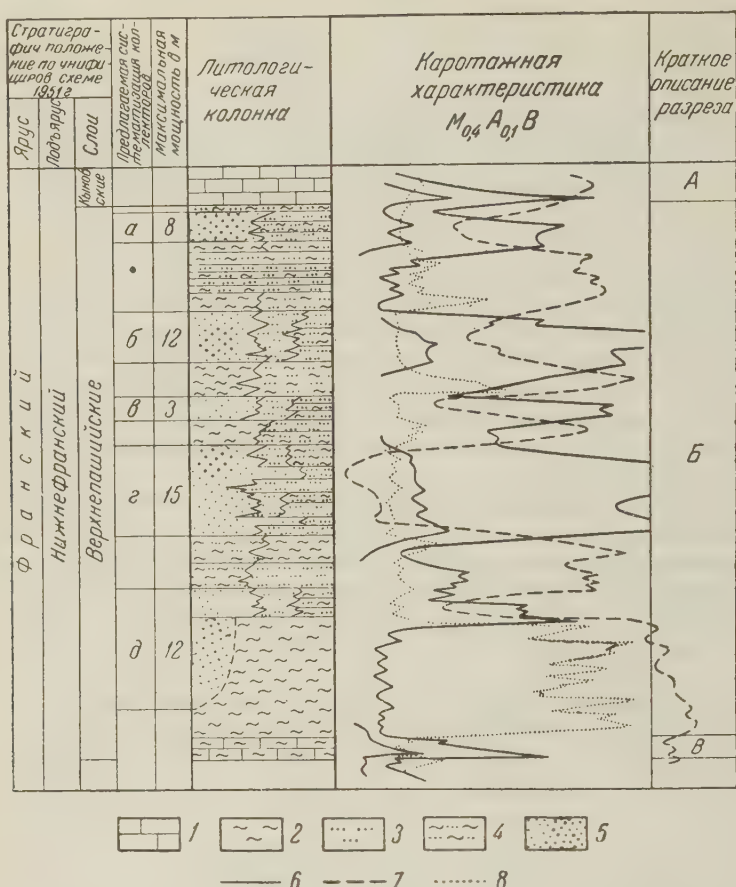 Стратигра-
фич положе-
ние по унифи-
циров схеме
1951г
Ярус
Подъярус
Слои
Предлагаемая сис-
тематизация кол-
лекторов
Максимальная
мощность в м
Литологи-
ческая
колонка
Каротажная
характеристика
М0,4 А0,1 В
Краткое
описание
разреза
Франский
Нижнефранский
Кынов-
ские
Верхнепашийские
а 8
б 12
в 3
г 15
д 12
А
Б
В
1 2 3 4 5
6 7 8